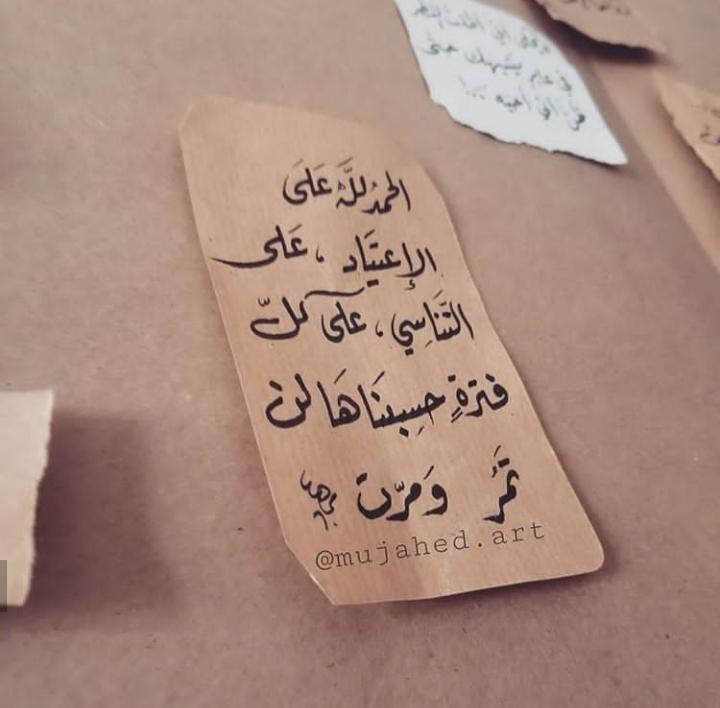 الحمدُ للَّهِ عَلَى
الإعتيَاد ، عَلى
التَّنَاسِي ، على كلّ
فترةٍ حسِبنَاهَا لن
تمُر وَمرّت
@mujahed.art
في عابر يشبهك حتى